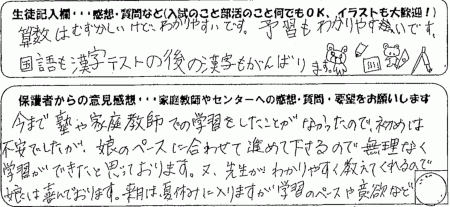 生徒記入欄・・・感想・質問など(入試のこと部活のこと何でもOK、イラストも大歓迎!)
算数はむずかしいけど、わかりやすいです。予習もわかりやすいです。
国語も漢字テストの後の漢字もがんばります。
保護者からの意見感想・・・家庭教師やセンターへの感想・質問・要望をお願いします
今まで塾や家庭教師での学習をしたことがなかったので、初めは
不安でしたが、娘のペースに合わせて進めて下さるので無理なく
学習ができたと思っております。又、先生がわかりやすく教えてくれるので
娘は喜んでおります。来月は夏休みに入りますが学習のペースや意欲など